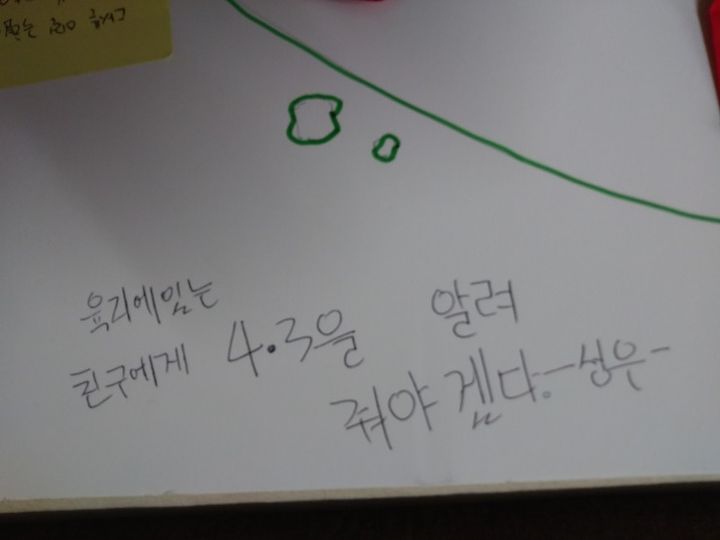 육지에있는
친구에게 4.3을 알려
줘야 겠다.-성우-